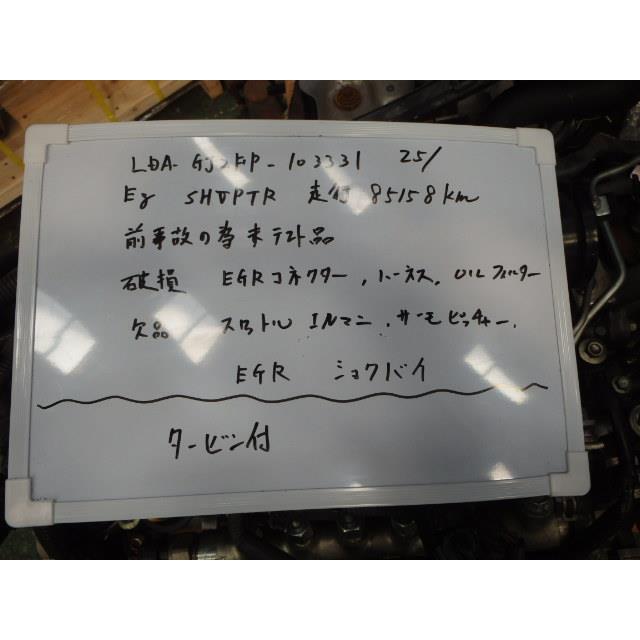 LDA-GJ2FP-103331 25/
Eg SHVPTR 走行 85158km
前事故の為未テスト品
破損 EGRコネクター, ハーネス, OILフィルター
欠品 スロットル INマニ, サーモピッチャー,
EGR ショクバイ
タービン付